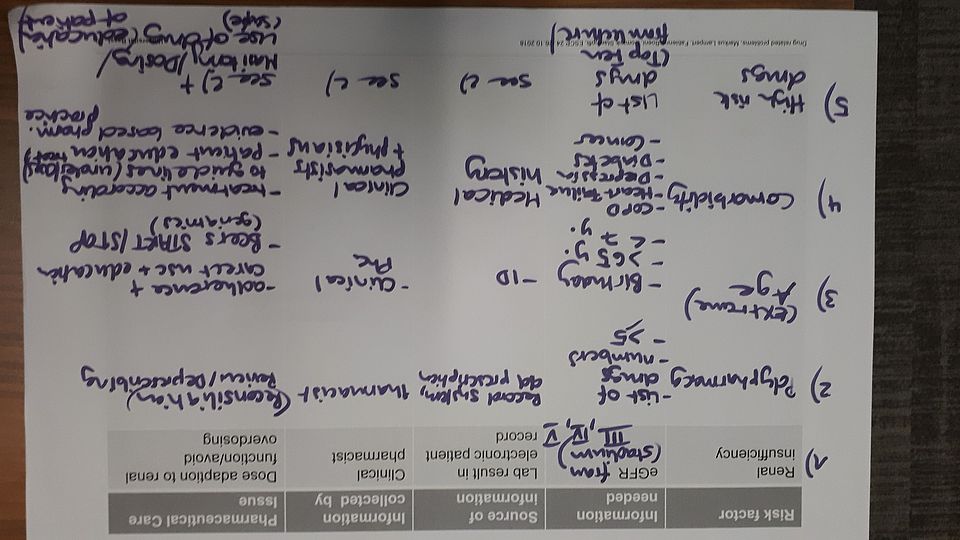 Risk factor
Information needed
Source of information
Information collected by
Pharmaceutical Care Issue
1)
Renal insufficiency
eGFR from
(stadium)
III, IV, V
Lab result in
electronic patient
record
Clinical
pharmacist
Dose adaption to renal
function/avoid
overdosing
2)
Polypharmacy
- List of
drugs
- numbers
- >5
Record system,
old prescription
Pharmacist
(Reconsiliation)
Review/Deprescribing
3)
(Extreme)
Age
- Birthday
- >65 y.
- < 7 y.
- ID
- Clinical
- adherence +
correct use + education
- Beers START/STOP
(geriatrics)
4)
Comorbidity
- COPD
- Heart Failure
- Depression
- Diabetes
- Cancer
Medical
history
Clinical
pharmacists
+ physisians
- treatment according
to guidelines
- Patient education
- evidence based pharm.
practice
5)
High risk
drugs
List of
drugs
(Top ten
from lecture)
see c)
see c)
see c) +
Monitor/Dosing/
use of drug (education
(safe) of patient)
Drug related problems, Markus Lampert, Fabienne ESCP 24 10 2018